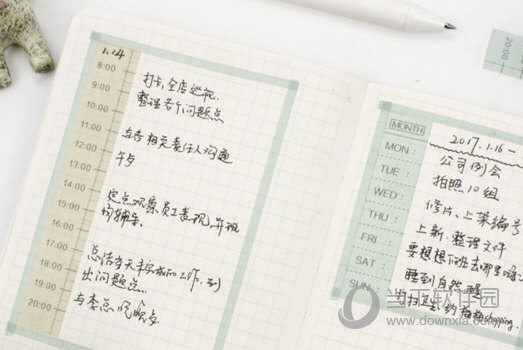 1.14
8:00
9:00
10:00
11:00
12:00
13:00
14:00
15:00
16:00
17:00
18:00
19:00
20:00
打卡,全店巡视.
整理若干问题点
与各相关责任人沟通
午歺
定点观察员工表现,并现
场辅导.
总结当天未完成的工作,列
出问题点.
与李总吃晚歺
20:00
MONTH
2017.1.16-
MON:
公司例会
TUE:
拍照10组
WED:
修片、上架编号
THU:
上新.整理文件
FRI:
要想想下班去哪里嗨
SAT:
睡到自然醒
SUN:
打扫卫生 约 shopping.
当下软件园
www.downxia.com